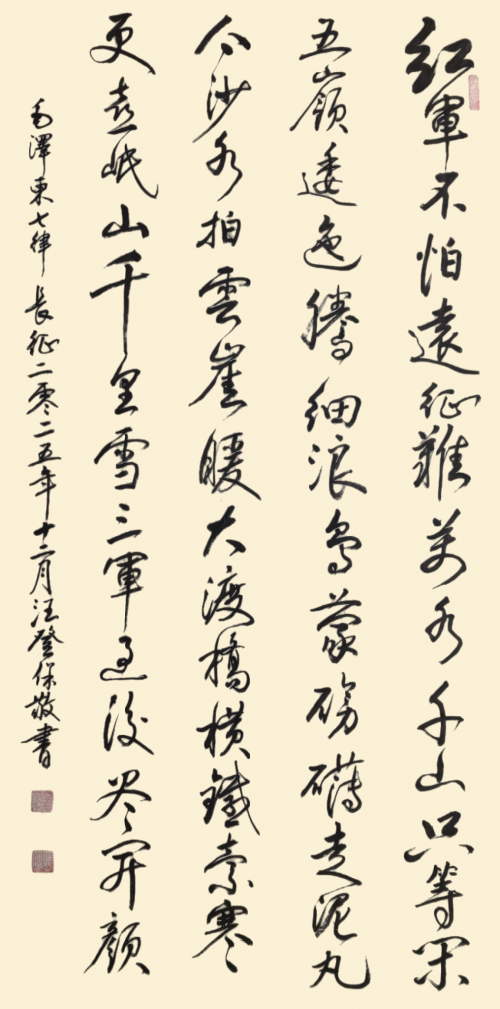 紅軍不怕遠征難萬水千山只等閑
五嶺逶迤騰細浪烏蒙磅礴走泥丸
金沙水拍雲崖暖大渡橋橫鐵索寒
更喜岷山千里雪三軍過後尽開顏
毛澤東七律長征二零二五年十二月汪登保敬書